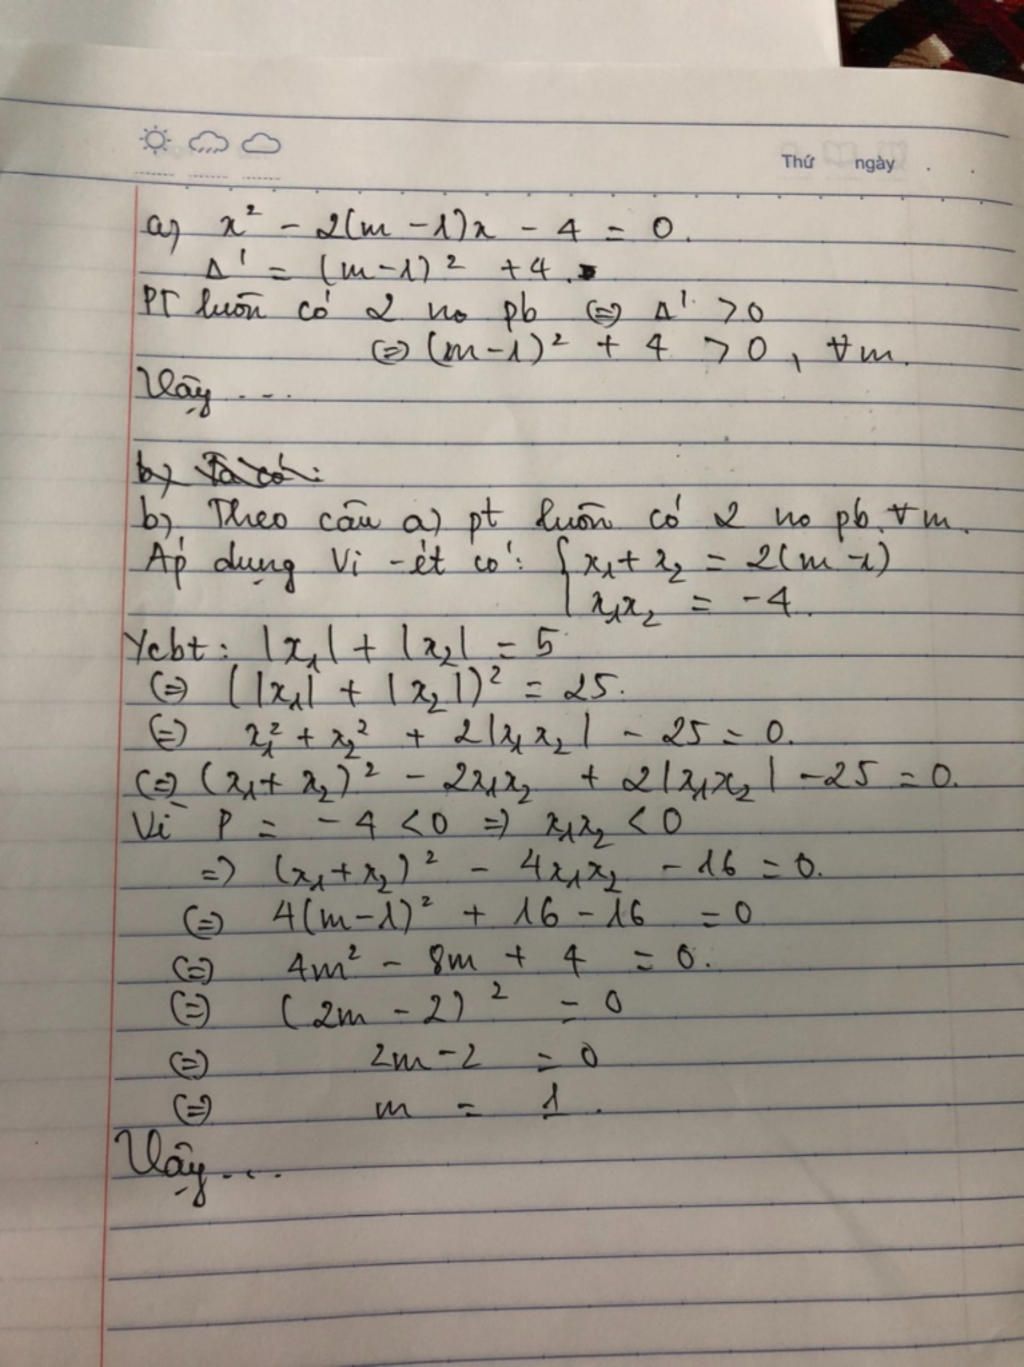 Thứ ngày
a) x² - 2(m-1)x - 4 = 0.
Δ' = (m-1)² + 4.
PT luôn có 2 no pb (=) Δ' > 0
(=) (m-1)² + 4 > 0, ∀m.
Vậy ...
b) Ta có:
b) Theo câu a) pt luôn có 2 no pb ∀m.
Áp dụng Vi-ét có: { x₁ + x₂ = 2(m-1)
x₁x₂ = -4.
Ycbt: |x₁| + |x₂| = 5
(=) (|x₁| + |x₂|)² = 25.
(=) x₁² + x₂² + 2|x₁x₂| - 25 = 0.
(=) (x₁ + x₂)² - 2x₁x₂ + 2|x₁x₂| - 25 = 0.
Vì P = -4 < 0 => x₁x₂ < 0
=) (x₁+x₂)² - 4x₁x₂ - 16 = 0.
(=) 4(m-1)² + 16 - 16 = 0
(=) 4m² - 8m + 4 = 0.
(=) (2m - 2)² = 0
(=) 2m-2 = 0
(=) m = 1.
Vậy ...